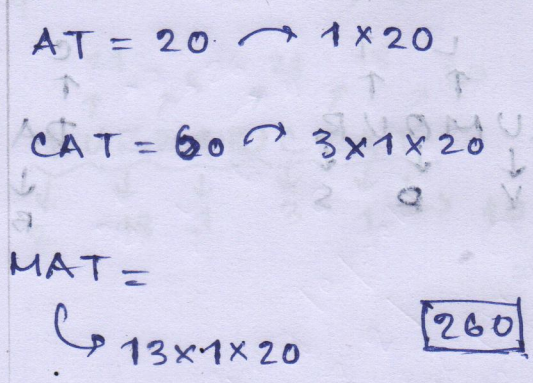 AT = 20 → 1 × 20
CAT = 60 → 3 × 1 × 20
MAT =
↳ 13 × 1 × 20
260